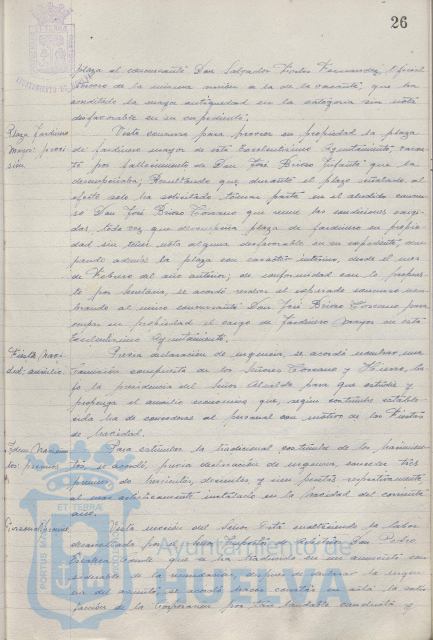 26
plaza al concursante Don Salvador Fernandez, Oficial
de la misma a la de la vacante, que ha
acreditado la mayor antigüedad en la categoria sin nota
desfavorable en su expediente.
Plaza Jardinero
Mayor: provi-
sión.
Visto concurso para proveer en propiedad la plaza
de jardinero mayor de este Excelentísimo Ayuntamiento, vacan-
te por fallecimiento de Don José Brioso Infante que la
desempeñaba; Resultando que, durante el plazo señalado al
efecto solo ha solicitado tomar parte en el aludido concur-
so Don José Brioso Toscano que reune las condiciones exigi-
das, toda vez que desempeña plaza de jardinero en propie-
dad sin tener nota alguna desfavorable en su expediente, ocu-
pando además la plaza con carácter interino, desde el mes
de Febrero del año anterior; de conformidad con lo propues-
to por Secretaria, se acordó resolver el expresado concurso nom-
brando al único concursante Don José Brioso Toscano para
ocupar en propiedad el cargo de Jardinero Mayor de este
Excelentísimo Ayuntamiento.
Fiesta Navi-
dad: auxilio
Previa declaración de urgencia, se acordó nombrar una
Comisión compuesta de los Señores Toscano y Hierro, ba-
jo la presidencia del Señor Alcalde para que estudie y
proponga el auxilio económico que, según costumbre estable-
cida ha de concederse al personal con motivo de las Fiestas
de Navidad.
Idem Nacimien-
tos: premios
Para estimular la tradicional costumbre de los Nacimien-
tos, se acordó, previa declaración de urgencia, conceder tres
premios de trescientas, doscientas y cien pesetas respectivamente,
al mas artísticamente instalado en la Navidad del corriente
año.
Visto moción del Señor enalteciendo la labor
desarrollada por el Señor Don Pedro
que se ha traducido en un aumento con-
siderable de la recaudación, después de declarar la urgen-
cia del asunto, se acordó hacer constar en acta la satis-
facción de la Corporación por tan laudable conducta y
Ayuntamiento de
HUELVA